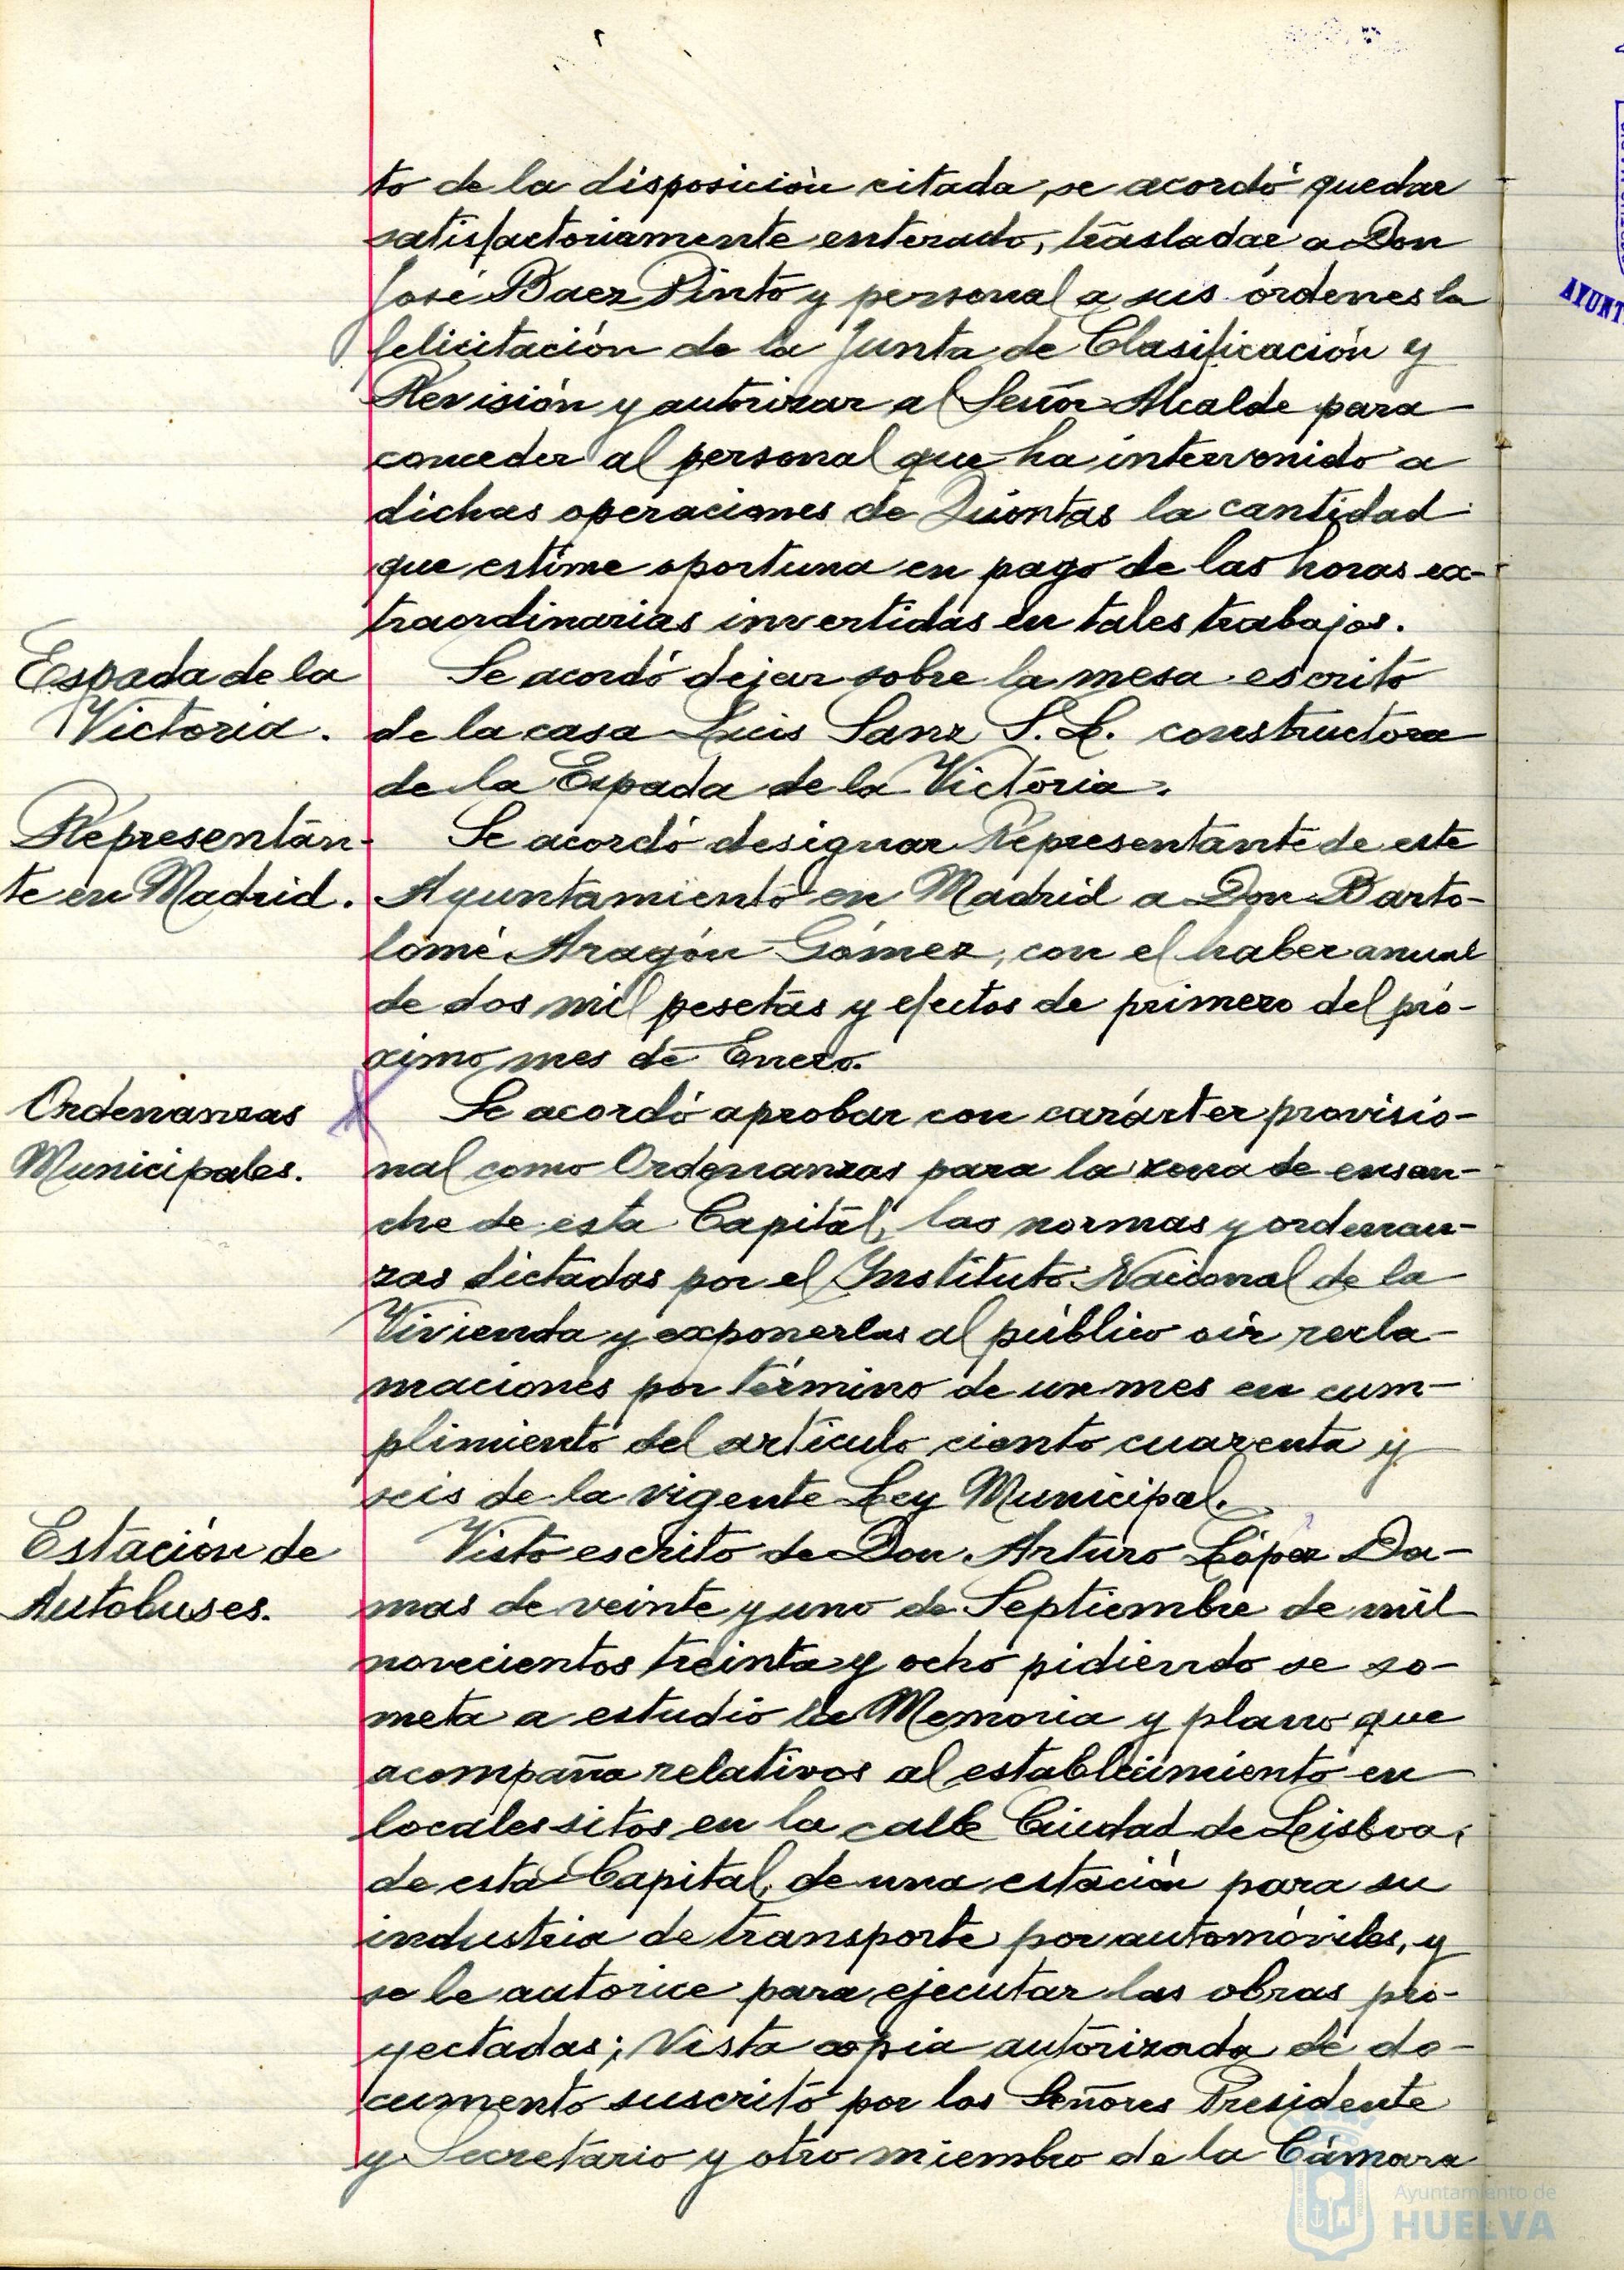 to de la disposición citada, se acordó quedar
satisfactoriamente enterado, trasladar a Don
José Baez Pinto y personal a sus órdenes la
felicitación de la Junta de Clasificación y
Revisión y autorizar al Señor Alcalde para
conceder al personal que ha intervenido a
dichas operaciones de Quintas la cantidad
que estime oportuna en pago de las horas ex-
traordinarias invertidas en tales trabajos.
Espada de la
Victoria.
Se acordó dejar sobre la mesa escrito
de la casa Luis Sanz S. L. constructora
de la Espada de la Victoria.
Representan-
te en Madrid.
Se acordó designar Representante de este
Ayuntamiento en Madrid a Don Barto-
lomé Aragón Gómez, con el haber anual
de dos mil pesetas y efectos de primero del pró-
ximo mes de Enero.
Ordenanzas
Municipales.
Se acordó aprobar con carácter provisio-
nal como Ordenanzas para la zona de ensan-
che de esta Capital, las normas y ordenan-
zas dictadas por el Instituto Nacional de la
Vivienda y exponerlas al público oir recla-
maciones por término de un mes en cum-
plimiento del artículo ciento cuarenta y
seis de la vigente Ley Municipal.
Estación de
Autobuses.
Visto escrito de Don Arturo López Da-
mas de veinte y uno de Septiembre de mil
novecientos treinta y ocho pidiendo se so-
meta a estudio la Memoria y plano que
acompaña relativos al establecimiento en
locales sitos en la calle Ciudad de Lisboa,
de esta Capital, de una estación para su
industria de transporte por automóviles, y
se le autorice para ejecutar las obras pro-
yectadas; Vista copia autorizada de do-
cumento suscrito por los Señores Presidente
y Secretario y otro miembro de la Cámara
AYUNT
Ayuntamiento de
HUELVA